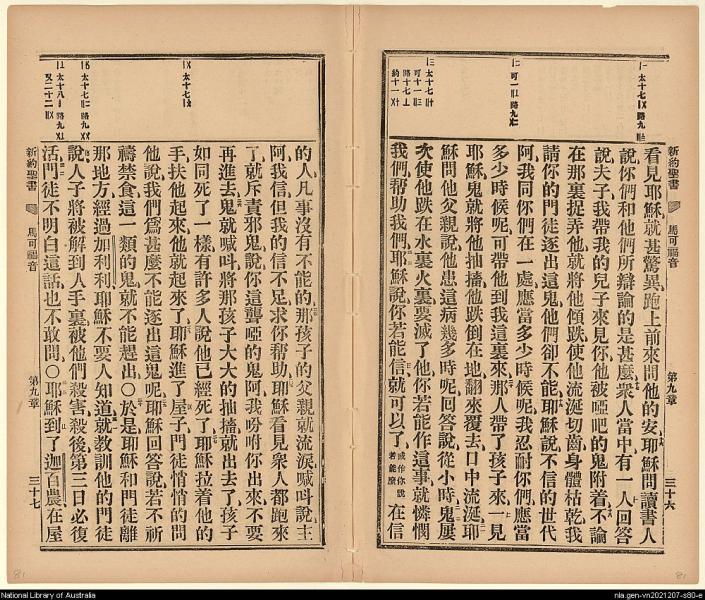 新約聖書
馬可福音
第九章
三十六
看見耶穌就甚驚異跑上前來問他的安耶穌問讀書人
說你們和他們所辯論的是甚麼衆人當中有一人回答
說夫子我帶我的兒子來見你他被啞吧的鬼附着不論
在那裏捉弄他就將他傾跌使他流涎切齒身體枯乾我
請你的門徒逐出這鬼他們卻不能耶穌說不信的世代
阿我同你們在一處應當多少時候呢我忍耐你們應當
多少時候呢可帶他到我這裏來那人帶了孩子來一見
耶穌鬼就將他抽搐他跌倒在地翻來覆去口中流涎耶
穌問他父親說他患這病幾多時呢回答說從小時鬼屢
次使他跌在水裏火裏要滅了他你若能作這事就憐憫
我們幫助我們耶穌說你若能信就可以了或作你說若能麼在信
的人凡事沒有不能的那孩子的父親就流淚喊叫說主
阿我信但我的信不足求你幫助耶穌看見衆人都跑來
了就斥責邪鬼說你這聾啞的鬼阿我吩咐你出來不要
再進去鬼就喊叫將那孩子大大的抽搐就出去了孩子
如同死了一樣有許多人說他已經死了耶穌拉着他的
手扶他起來他就起來了耶穌進了屋子門徒悄悄的問
他說我們爲甚麼不能逐出這鬼呢耶穌回答說若不祈
禱禁食這一類的鬼就不能趕出〇於是耶穌和門徒離
那地方經過加利利耶穌不要人知道就教訓他的門徒
說人子將被解到人手裏被他們殺害殺後第三日必復
活門徒不明白這話也不敢問〇耶穌到了迦百農在屋
新約聖書
馬可福音
第九章
三十七
National Library of Australia
nla.gen-vn2021207-s80-e